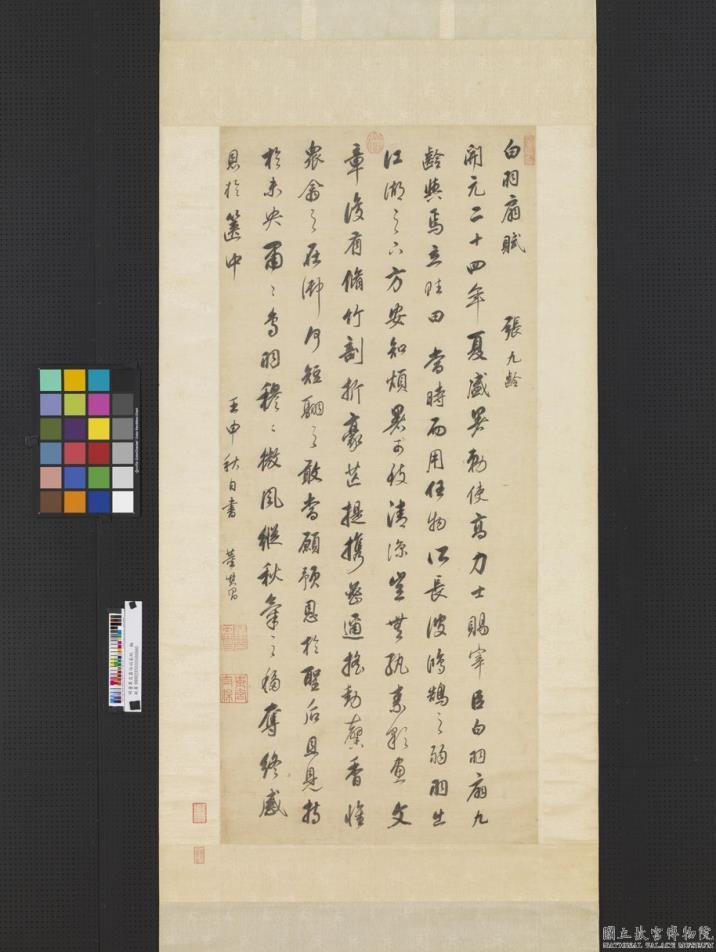 白羽扇賦 張九齡
開元二十四年夏盛暑勅使高力士賜宰臣白羽扇九
齡與焉立賦曰當時而用任物所長彼鴻鵠之弱羽出
江湖之下方安知煩暑可致清涼豈無紈素彩畫文
章復有脩竹剖析豪芒提攜密邇搖動馨香惟
衆禽之在御何短翮之敢當顧預恩於聖后且見持
於未央肅〻鳥羽穆〻微風縱秋氣之移奪終感
恩於篋中 壬申秋日書 董其昌
國立故宮博物院
NATIONAL PALACE MUSEUM